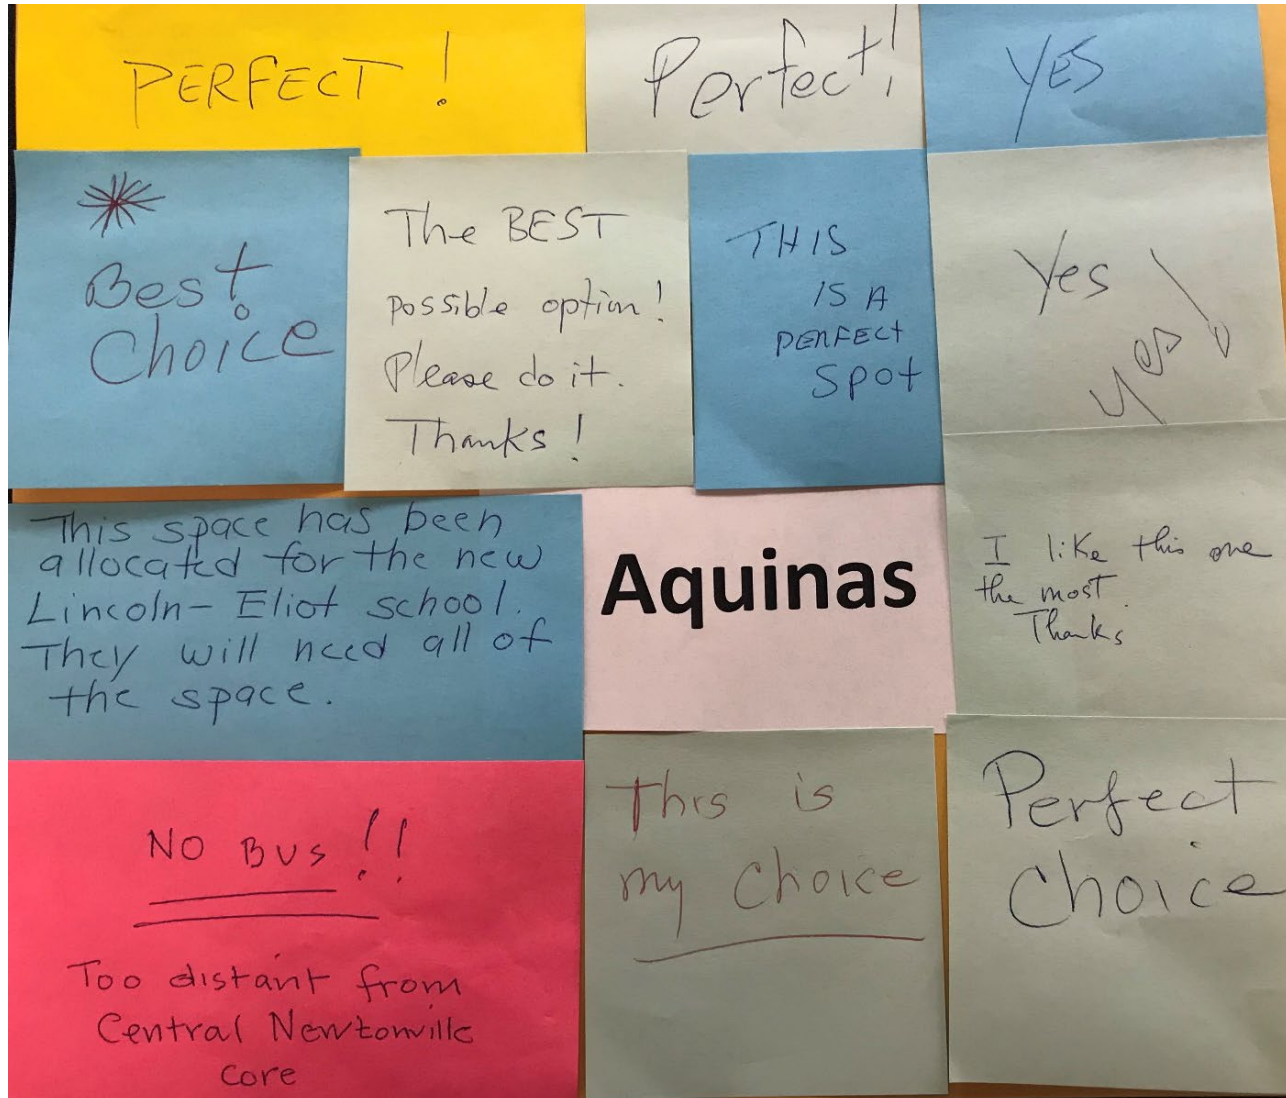 PERFECT !
Perfect!
YES
Best
Choice
The BEST
possible option!
Please do it.
Thanks!
THIS
IS A
PERFECT
Spot
Yes !
yes
This space has been
allocated for the new
Lincoln-Eliot school.
They will need all of
the space.
Aquinas
I like this one
the most.
Thanks
NO BUS!!
Too distant from
Central Newtonville
core
This is
my choice
Perfect
Choice